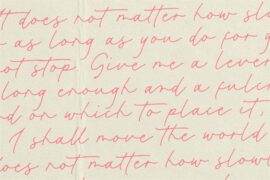 It does not matter how slo
as long as you do
not stop. Give me a lever
long enough and a fulcr
d on which to place it,
I shall move the world
does not matter how slow